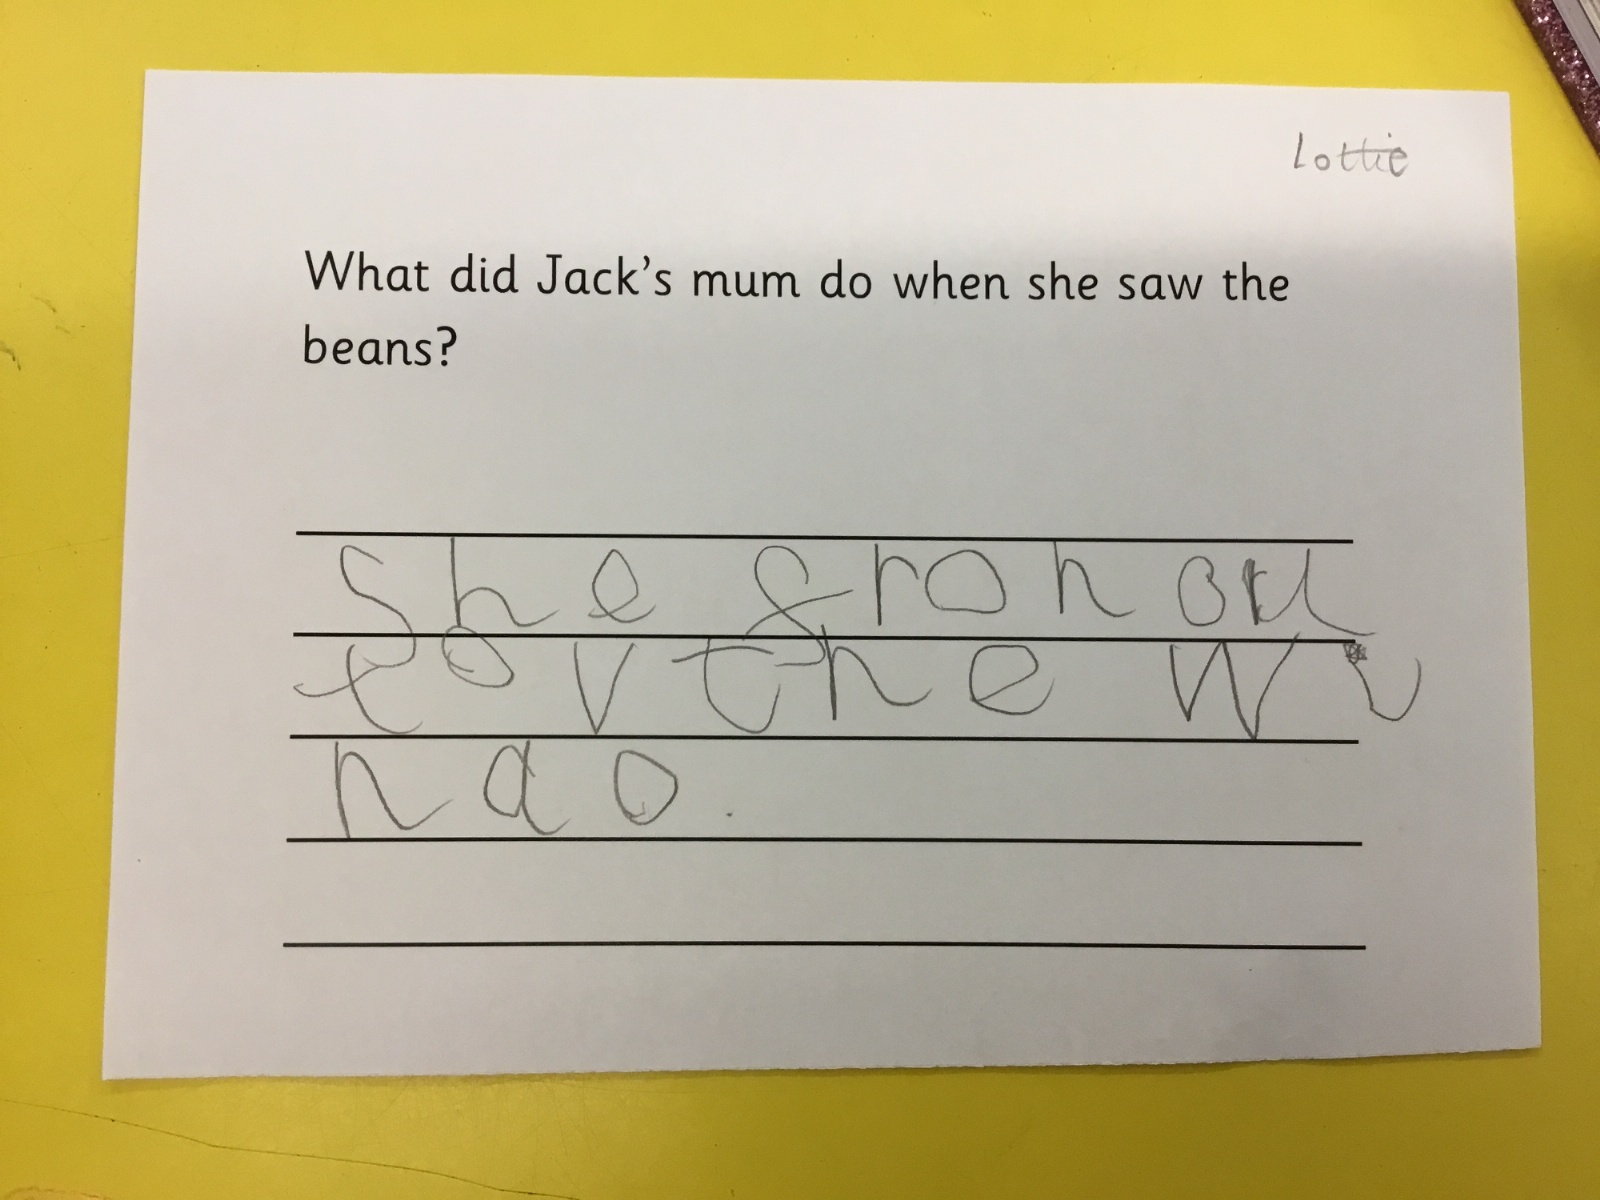 Lottie
What did Jack's mum do when she saw the
beans?
She fron ou
t ov the wi
ndo.